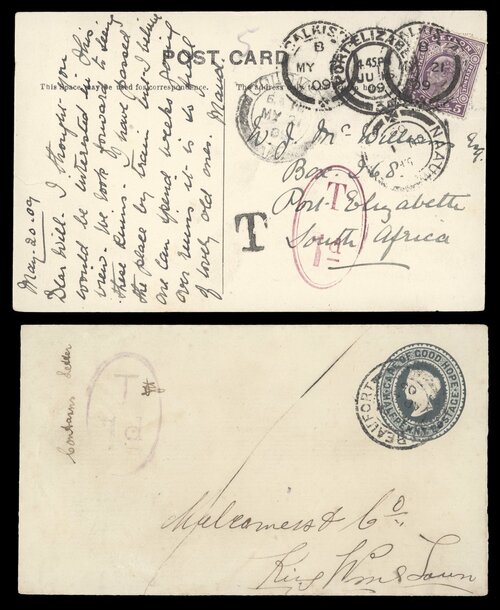 POST CARD
This space may be used for correspondence.
The
May. 20. 09
Dear Will. I thought you
would be interested in this
view. We look forward to seeing
these Ruins. We have passed
the place by train but I believe
one can spend weeks going
over ruins it is so full
of lovely old ones. Maud.
BALKIS
B
MY
09
PORT ELIZABETH
4 45 PM
JU
09
BALKIS
B
MY 21
09
MY
W. J. McWilliams Esq.
Box 368
Port Elizabeth
South Africa
T
T
1d
Contains Letter
T
1D
CAPE OF GOOD HOPE
POSTAGE
BEAUFORT
Malcomess & Co.
King Wms Town